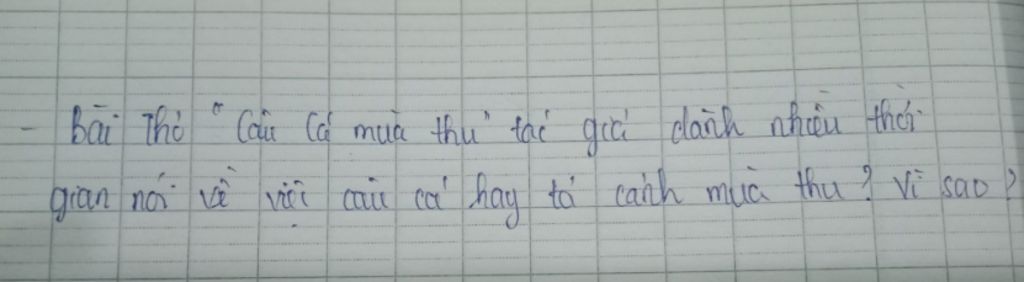 - Bài thơ "Câu cá mùa thu" tác giả dành nhiều thời
gian nói về việc câu cá hay tả cảnh mùa thu? Vì sao?